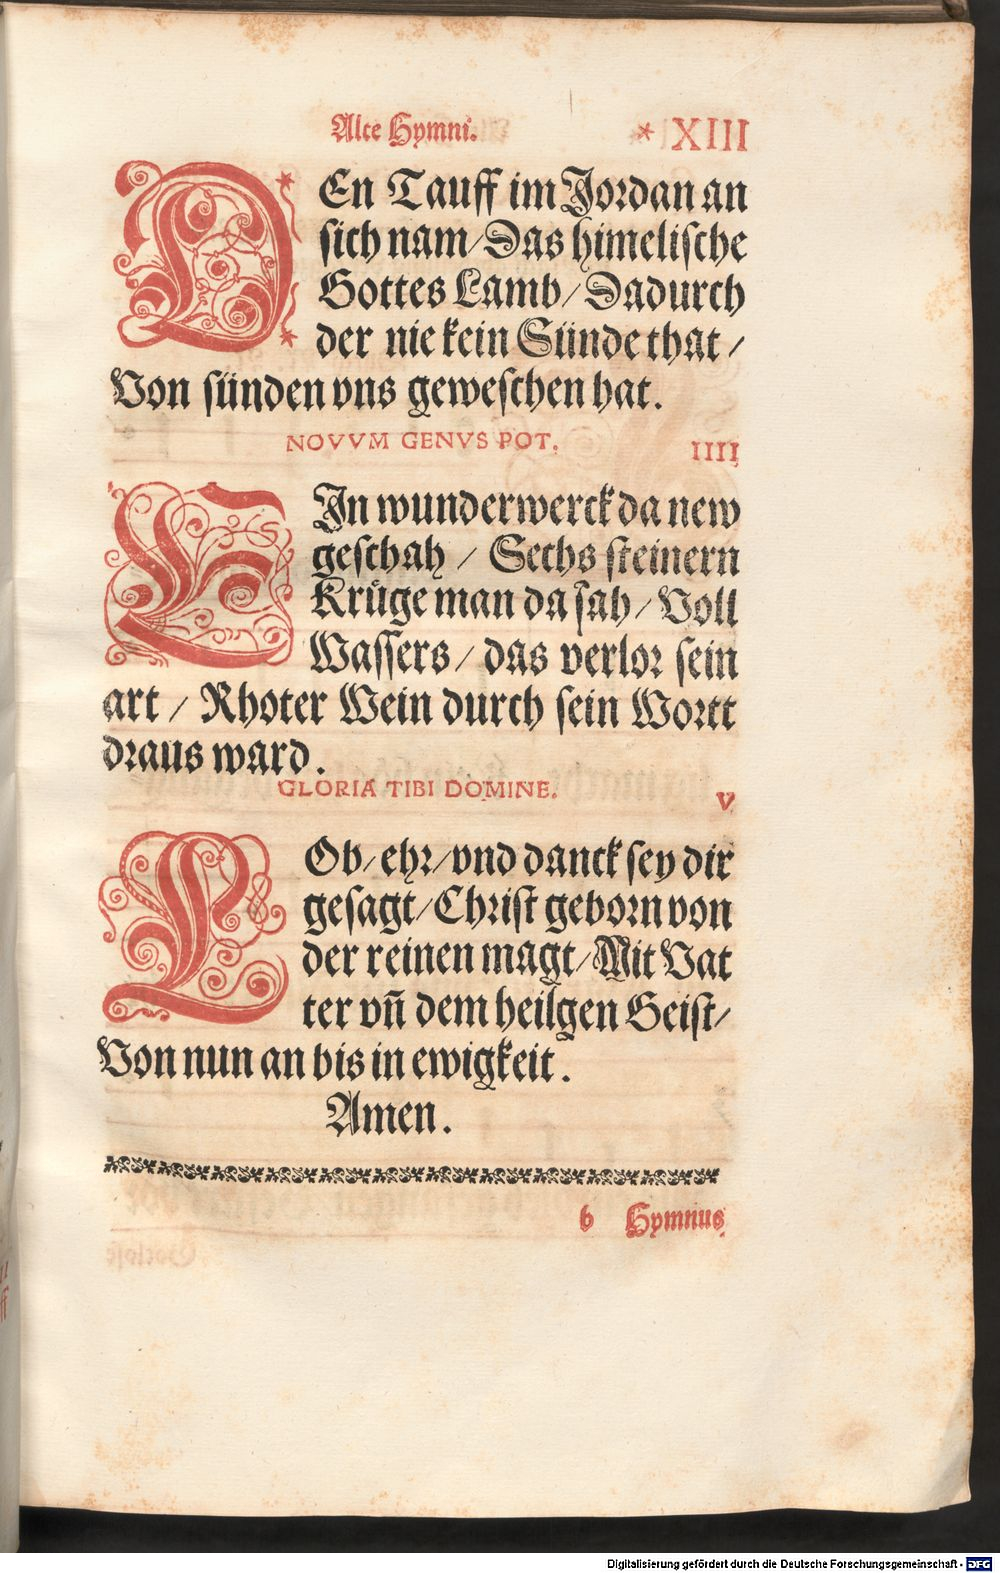 Alte Hymni. * XIII
DEn Tauff im Jordan an
sich nam/ Das himelische
Gottes Lamb/ Dadurch
der nie kein Sünde that /
Von sünden vns geweschen hat.
NOVVM GENVS POT. IIII
EJn wunderwerck da new
geschah / Sechs steinern
Krüge man da sah/ Voll
Wassers/ das verlor sein
art / Rhoter Wein durch sein Wortt
draus ward.
GLORIA TIBI DOMINE. V
LOb/ ehr/ vnd danck sey dir
gesagt/ Christ geborn von
der reinen magt/ Mit Vat
ter vñ dem heilgen Geist/
Von nun an bis in ewigkeit.
Amen.
b Hymnus
Digitalisierung gefördert durch die Deutsche Forschungsgemeinschaft - DFG